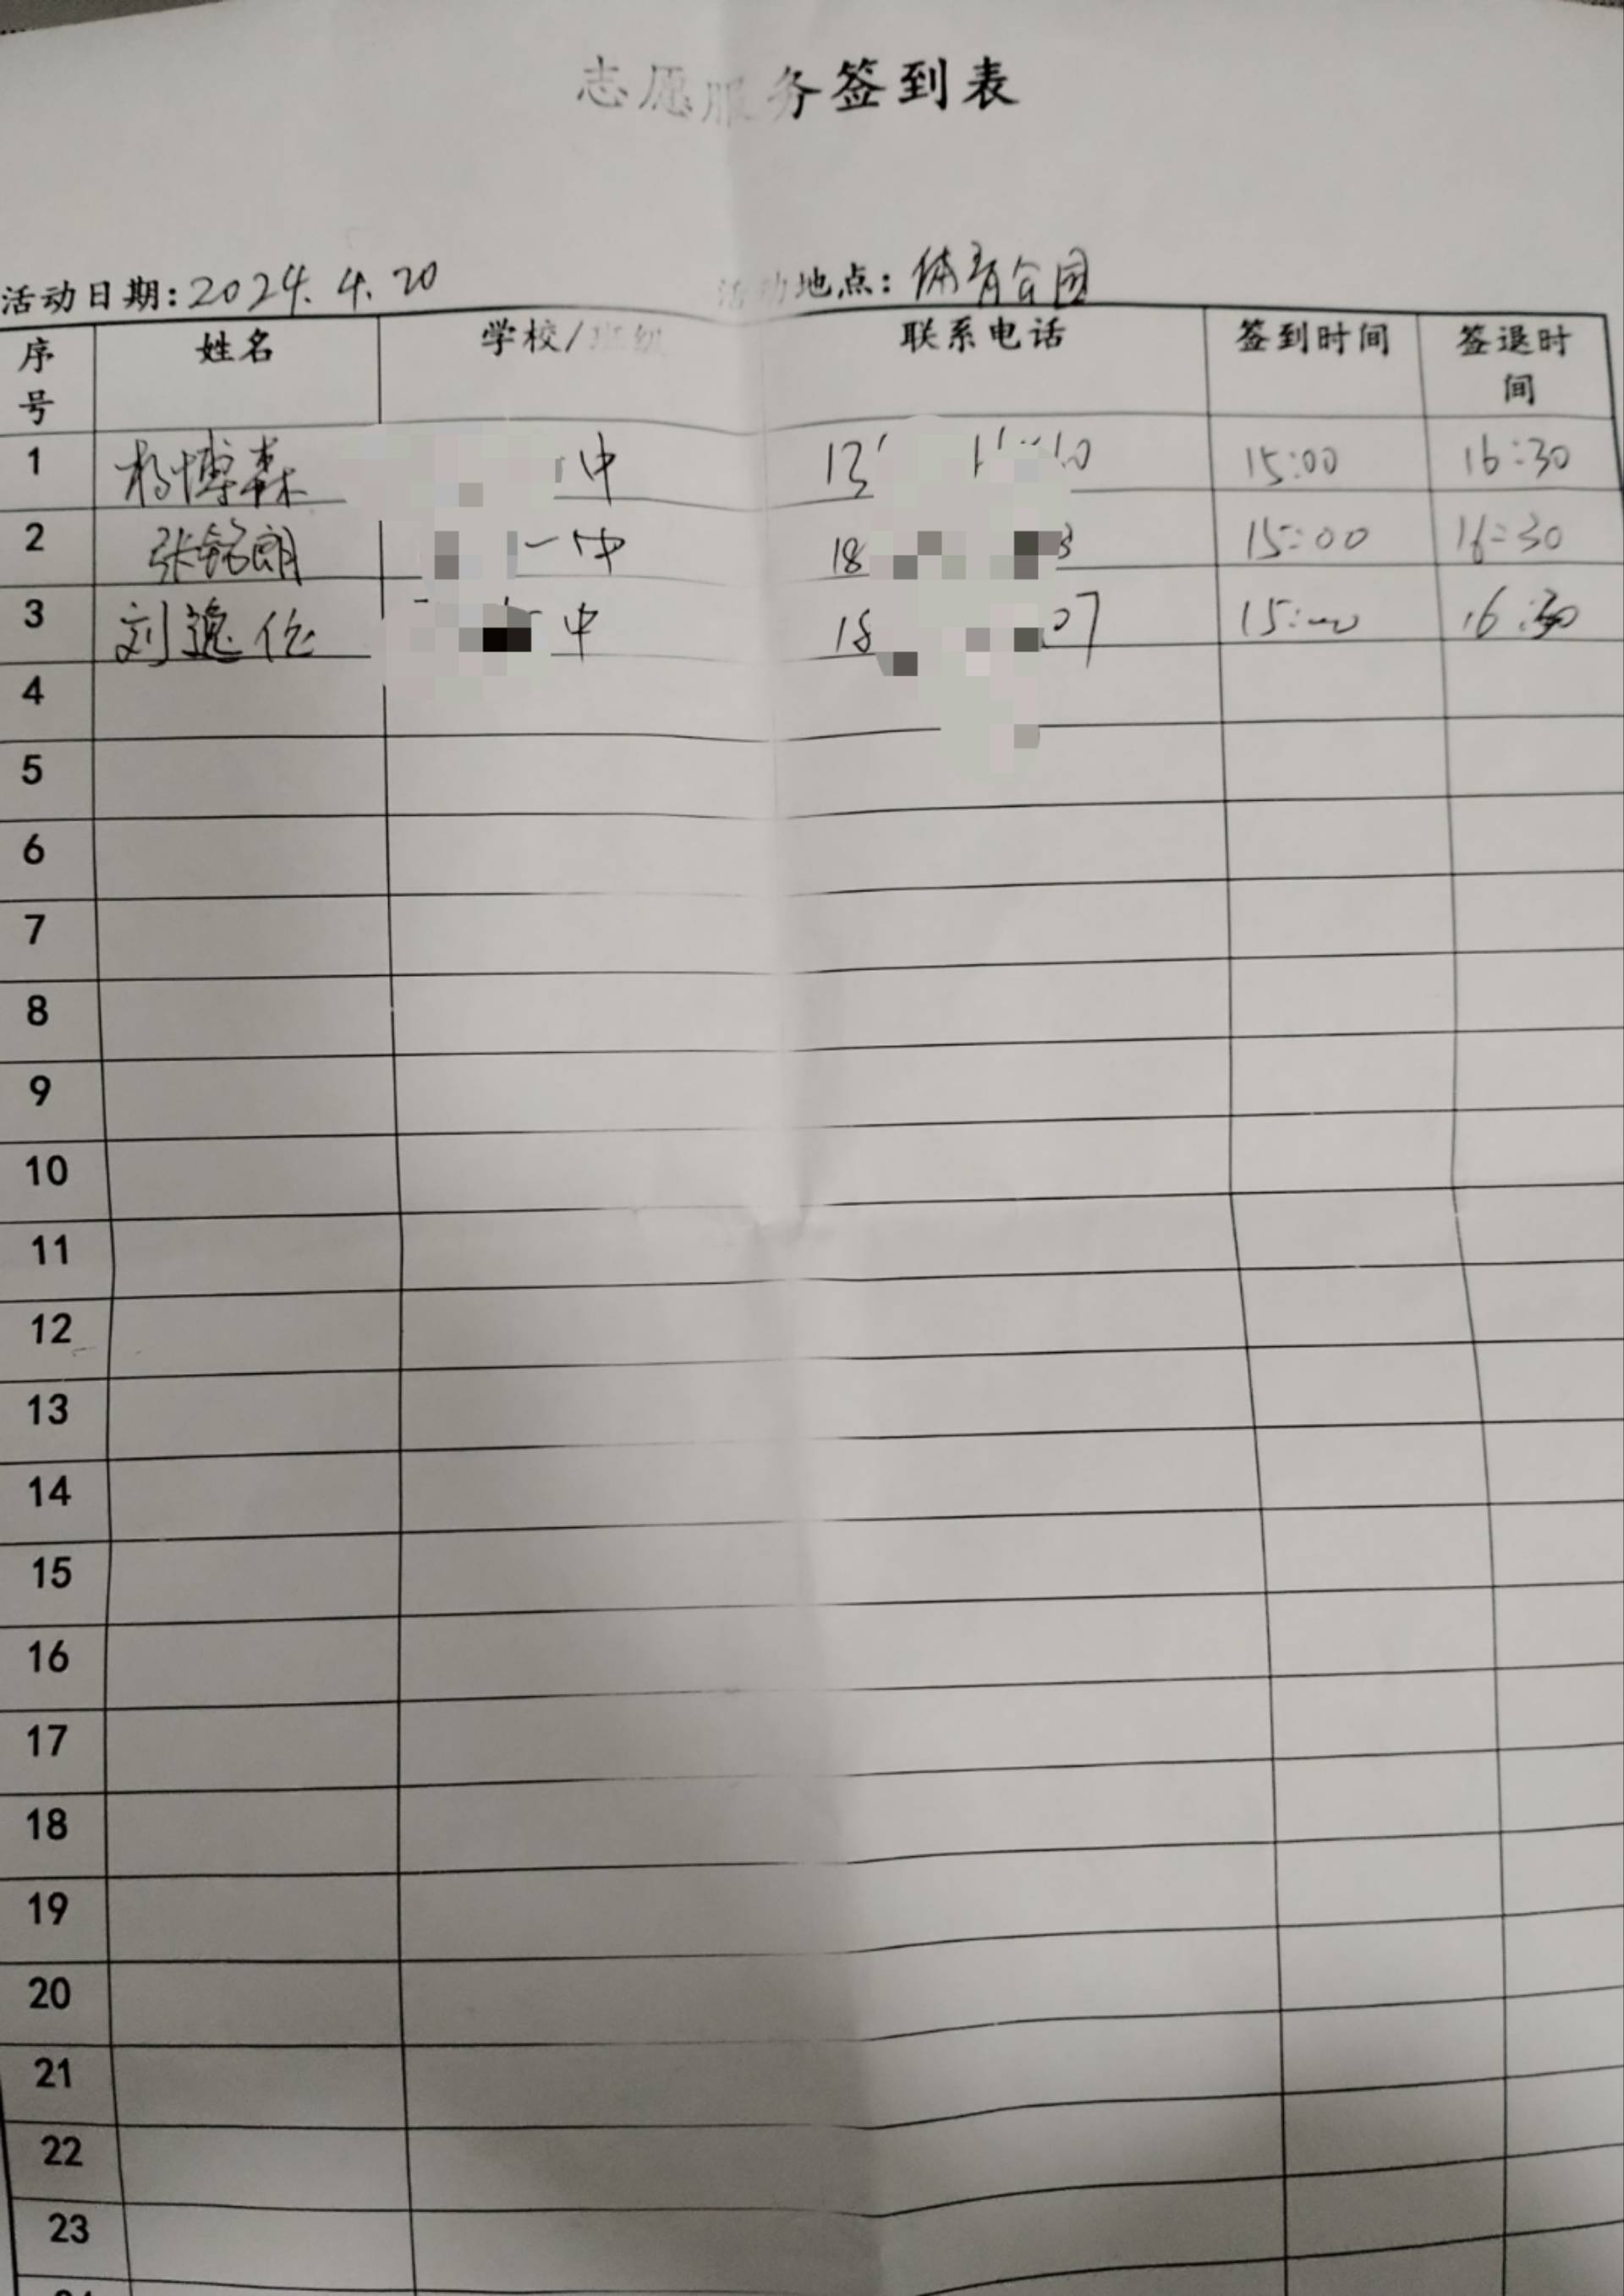 志愿服务签到表
活动日期:2024.4.20 活动地点:体育公园
序号 姓名 学校/班级 联系电话 签到时间 签退时间
1 杨博森 中 13 10 15:00 16:30
2 张铭朗 一中 18 3 15:00 16:30
3 刘逸伦 中 18 07 15:00 16:30
4
5
6
7
8
9
10
11
12
13
14
15
16
17
18
19
20
21
22
23